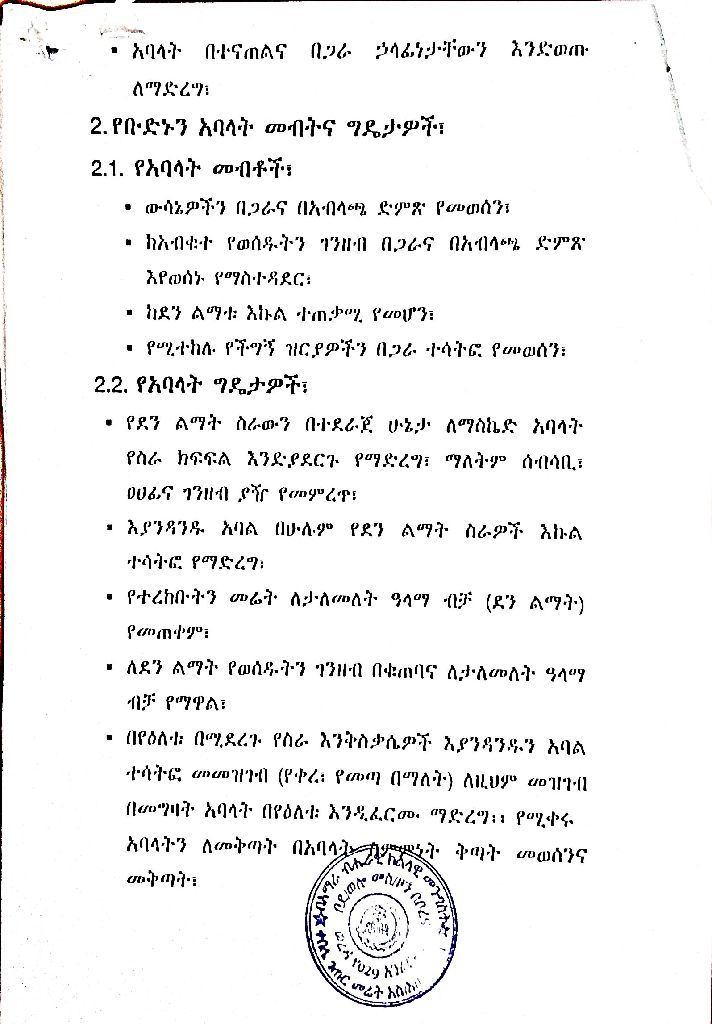 ▪ አባላት በተናጠልና በጋራ ኃላፊነታቸውን እንድወጡ
ለማድረግ፣
2. የቡድኑን አባላት መብትና ግዴታዎች፣
2.1. የአባላት መብቶች፣
▪ ውሳኔዎችን በጋራና በአብላጫ ድምጽ የመወሰን፣
▪ ከአብቁተ የወሰዱትን ገንዘብ በጋራና በአብላጫ ድምጽ
እየወሰኑ የማስተዳደር፣
▪ ከደን ልማቱ እኩል ተጠቃሚ የመሆን፣
▪ የሚተከሉ የችግኝ ዝርያዎችን በጋራ ተሳትፎ የመወሰን፣
2.2. የአባላት ግዴታዎች፣
▪ የደን ልማት ስራውን በተደራጀ ሁኔታ ለማስኬድ አባላት
የስራ ክፍፍል እንድያደርጉ የማድረግ፣ ማለትም ሰብሳቢ፣
ዐህፊና ገንዘብ ያዥ የመምረጥ፣
▪ እያንዳንዱ አባል በሁሉም የደን ልማት ስራዎች እኩል
ተሳትፎ የማድረግ፣
▪ የተረከቡትን መሬት ለታለመለት ዓላማ ብቻ (ደን ልማት)
የመጠቀም፣
▪ ለደን ልማት የወሰዱትን ገንዘብ በቁጠባና ለታለመለት ዓላማ
ብቻ የማዋል፣
▪ በየዕለቱ በሚደረጉ የስራ እንቅስቃሴዎች እያንዳንዱን አባል
ተሳትፎ መመዝገብ (የቀረ፣ የመጣ በማለት) ለዚህም መዝገብ
በመግዛት አባላት በየዕለቱ እንዲፈርሙ ማድረግ፡፡ የሚቀሩ
አባላትን ለመቅጣት በአባላት ስምምነት ቅጣት መወሰንና
መቅጣት፣
በአማራ ብሔራዊ ክልላዊ መንግስት